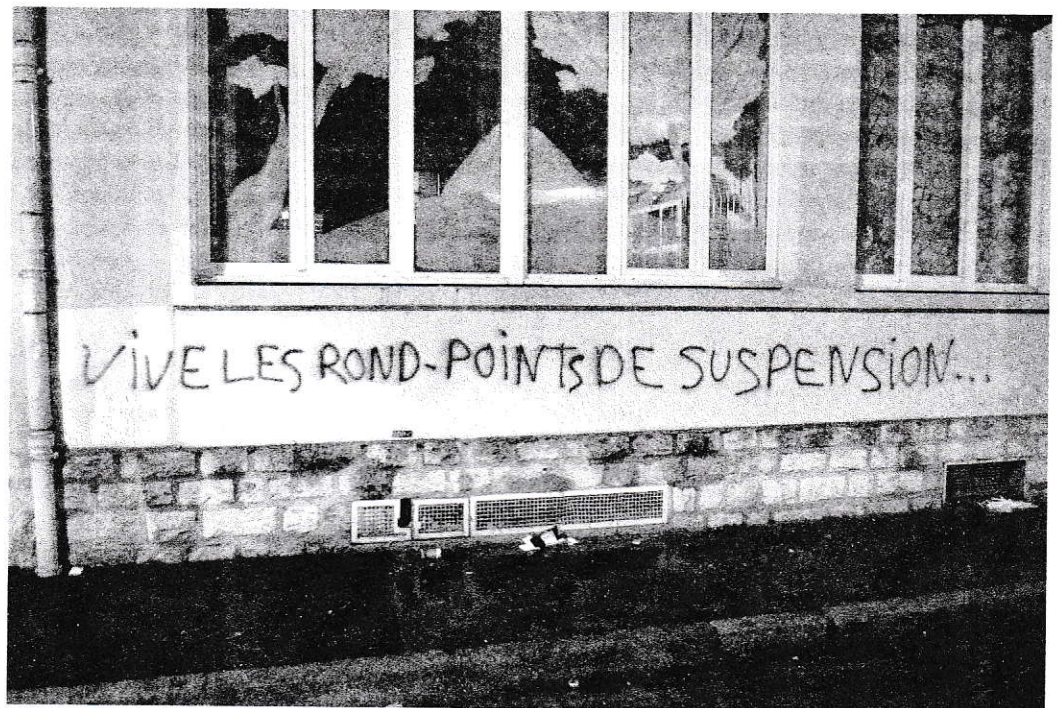 ViVE LES ROND-POiNTs DE SUSPENSiON...